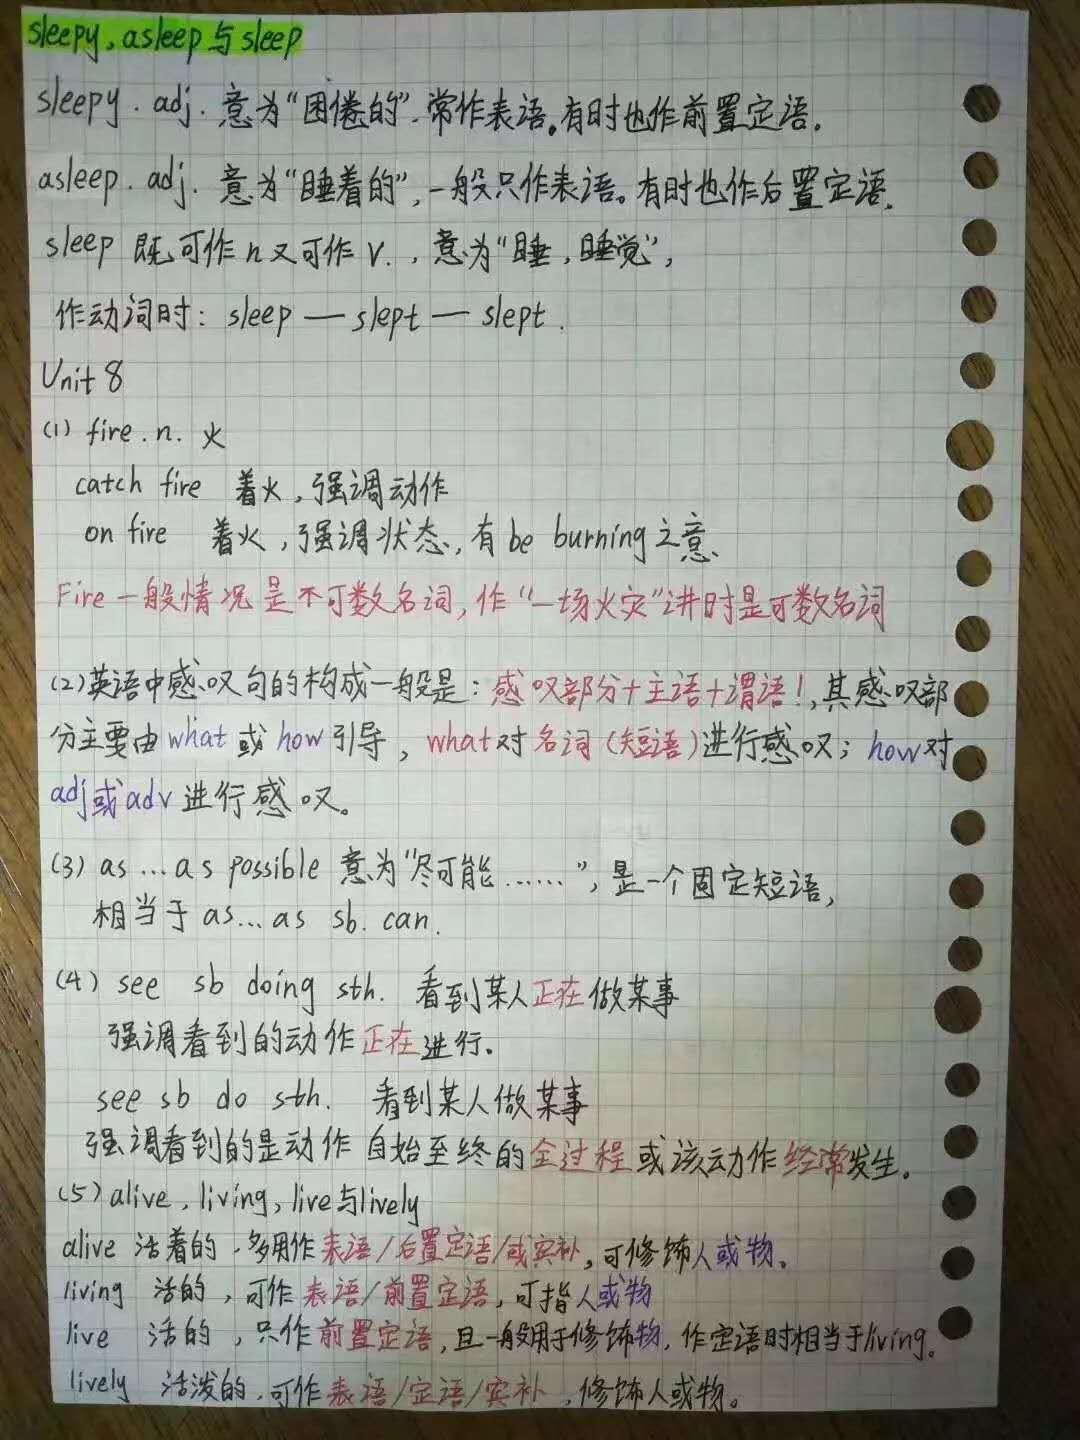 sleepy, asleep与sleep
sleepy. adj. 意为“困倦的”.常作表语。有时也作前置定语.
asleep. adj. 意为“睡着的”,一般只作表语。有时也作后置定语.
sleep 既可作n又可作v.,意为“睡,睡觉”,
作动词时: sleep — slept — slept.
Unit 8
(1) fire. n. 火
catch fire 着火,强调动作
on fire 着火,强调状态,有be burning之意.
Fire一般情况是不可数名词,作“一场火灾”讲时是可数名词
(2)英语中感叹句的构成一般是:感叹部分+主语+谓语!,其感叹部
分主要由what或how引导,what对名词(短语)进行感叹;how对
adj或adv进行感叹。
(3) as...as possible 意为“尽可能......”,是一个固定短语,
相当于as...as sb. can.
(4) see sb doing sth. 看到某人正在做某事
强调看到的动作正在进行.
see sb do sth. 看到某人做某事
强调看到的是动作自始至终的全过程或该动作经常发生。
(5)alive, living, live与lively
alive 活着的.多用作表语/后置定语/或宾补,可修饰人或物。
living 活的,可作表语/前置定语,可指人或物
live 活的,只作前置定语,且一般用于修饰物.作定语时相当于living。
lively 活泼的.可作表语/定语/宾补,修饰人或物。